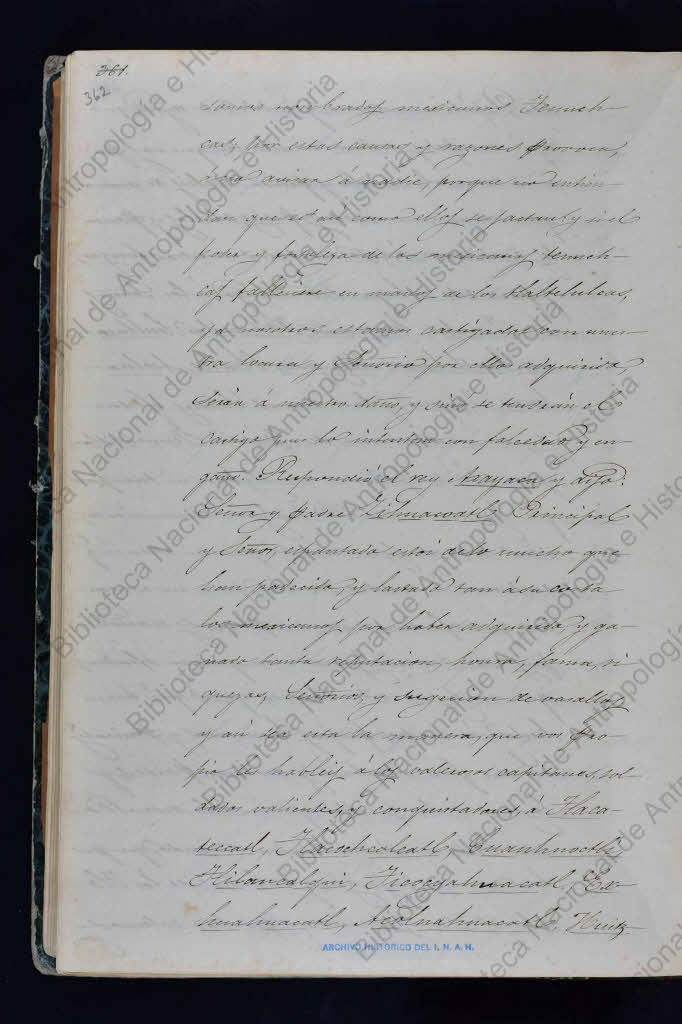 361.
362
nombrados mexicanos Tenuch-
cas, por estas causas y razones
avisar a nadie, porque no entien-
dan que es asi como ellos se jactan: y si el
poder y fortaleza de los mexicanos tenuch-
cas falleciere en manos de los tlaltelulcas,
ya nosotros estamos castigados con nues-
tra locura y Señorio por ellos adquirido,
Serán á nuestro daño, y sino se tendrán el
castigo pues lo intentan con falcedad y en-
gaño. Respondió el rey Axayaca y dijo:
Señor y padre Zihuacoatl Principal
y Señor, espantado estoi de lo mucho que
han padecido, y lastado tan á su costa
los mexicanos por haber adquirido, y ga-
nado tanta reputacion, honra, fama, ri
quezas, Señorios, y sugecion de vasallos
y asi sea esta la manera, que vos pro-
pio les hableis á los valerosos capitanes, sol-
dados valientes, y conquistadores, á Tlaca-
teccatl, Tlacochcalcatl, Cuauhnoctli
Tilancalqui, Ticocyahuacatl, Ez-
huahuacatl, Acolnahuacatl, Huitz-
ARCHIVO HISTORICO DEL I. N. A. H.
Biblioteca Nacional de Antropología e Historia